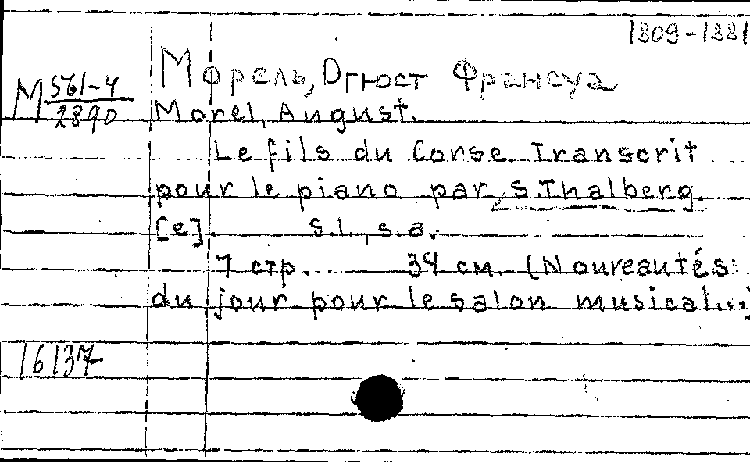 1809-1881
Морель, Огюст Франсуа
М 561-4
2890
Morel, August.
Le fils du Corse. Transcrit
pour le piano par S. Thalberg.
[e]. S.l., s.a.
7 стр. 34 см. (Nouveautés
du jour pour le salon musical...)
16137